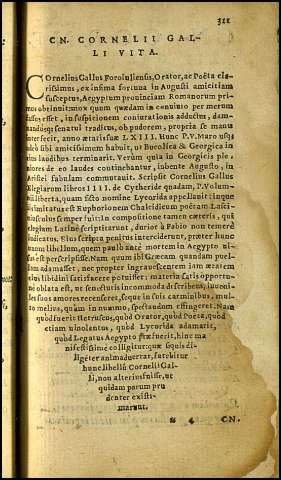 311
CN. CORNELII GAL-
LI VITA.
Cornelius Gallus Foroiuliensis, Orator, ac Poëta cla-
rissimus, ex infima fortuna in Augusti amicitiam
susceptus, Aegyptum prouinciam Romanorum pri-
mus obtinuit: mox quum quædam in conuiuio per merum
fusus esset, in suspicionem coniurationis adductus, dam-
nandúsque senatui traditus, ob pudorem, propria se manu
interfecit, anno ætatis suæ LXIII. Hunc P. V. Maro usq;
adeò sibi amicissimum habuit, ut Bucolica & Georgica in
eius laudibus terminarit. Verùm quia in Georgicis ple-
niores de eo laudes continebantur, iubente Augusto, in
Aristæi fabulam commutauit. Scripsit Cornelius Gallus
Elegiarum libros IIII. de Cytheride quadam, P. Volum-
nii liberta, quam ficto nomine Lycorida appellauit: inque
imitatus est Euphorionem Chalcidicum poëtam
semper fuit: In compositione tamen
elegum Latinè scriptitarunt, durior à Fabio non temerè
iudicatus. Eius scripta penitus interciderunt, præter hunc
unum libellum, quem paulò ante mortem in Aegypto
est perscripsisse. Nam quum ibi Græcam quandam puel-
lam adamasset, nec propter ingrauescentem iam ætatem
eius libidini satisfacere potuisset: materia satis opportu-
nè oblata est, ut senectutis incommoda describens, iuueni-
les suos amores recenseret, seque in suis carminibus, mul-
to melius, quàm in nummo, spectandum effingeret. Nam
quòd fuerit Hetruscus, quòd Orator, quòd Poëta, quòd
etiam uinolentus, quòd Lycorida adamarit,
quòd Legatus Aegypto præfuerit, hinc ma
nifestissimè colligitur: quæ si quis di-
ligẽter animaduertat, fatebitur
hunc libellũ Cornelii Gal-
li, non alterius fuisse, ut
quidam parum pru
denter existi-
marunt.
CN.